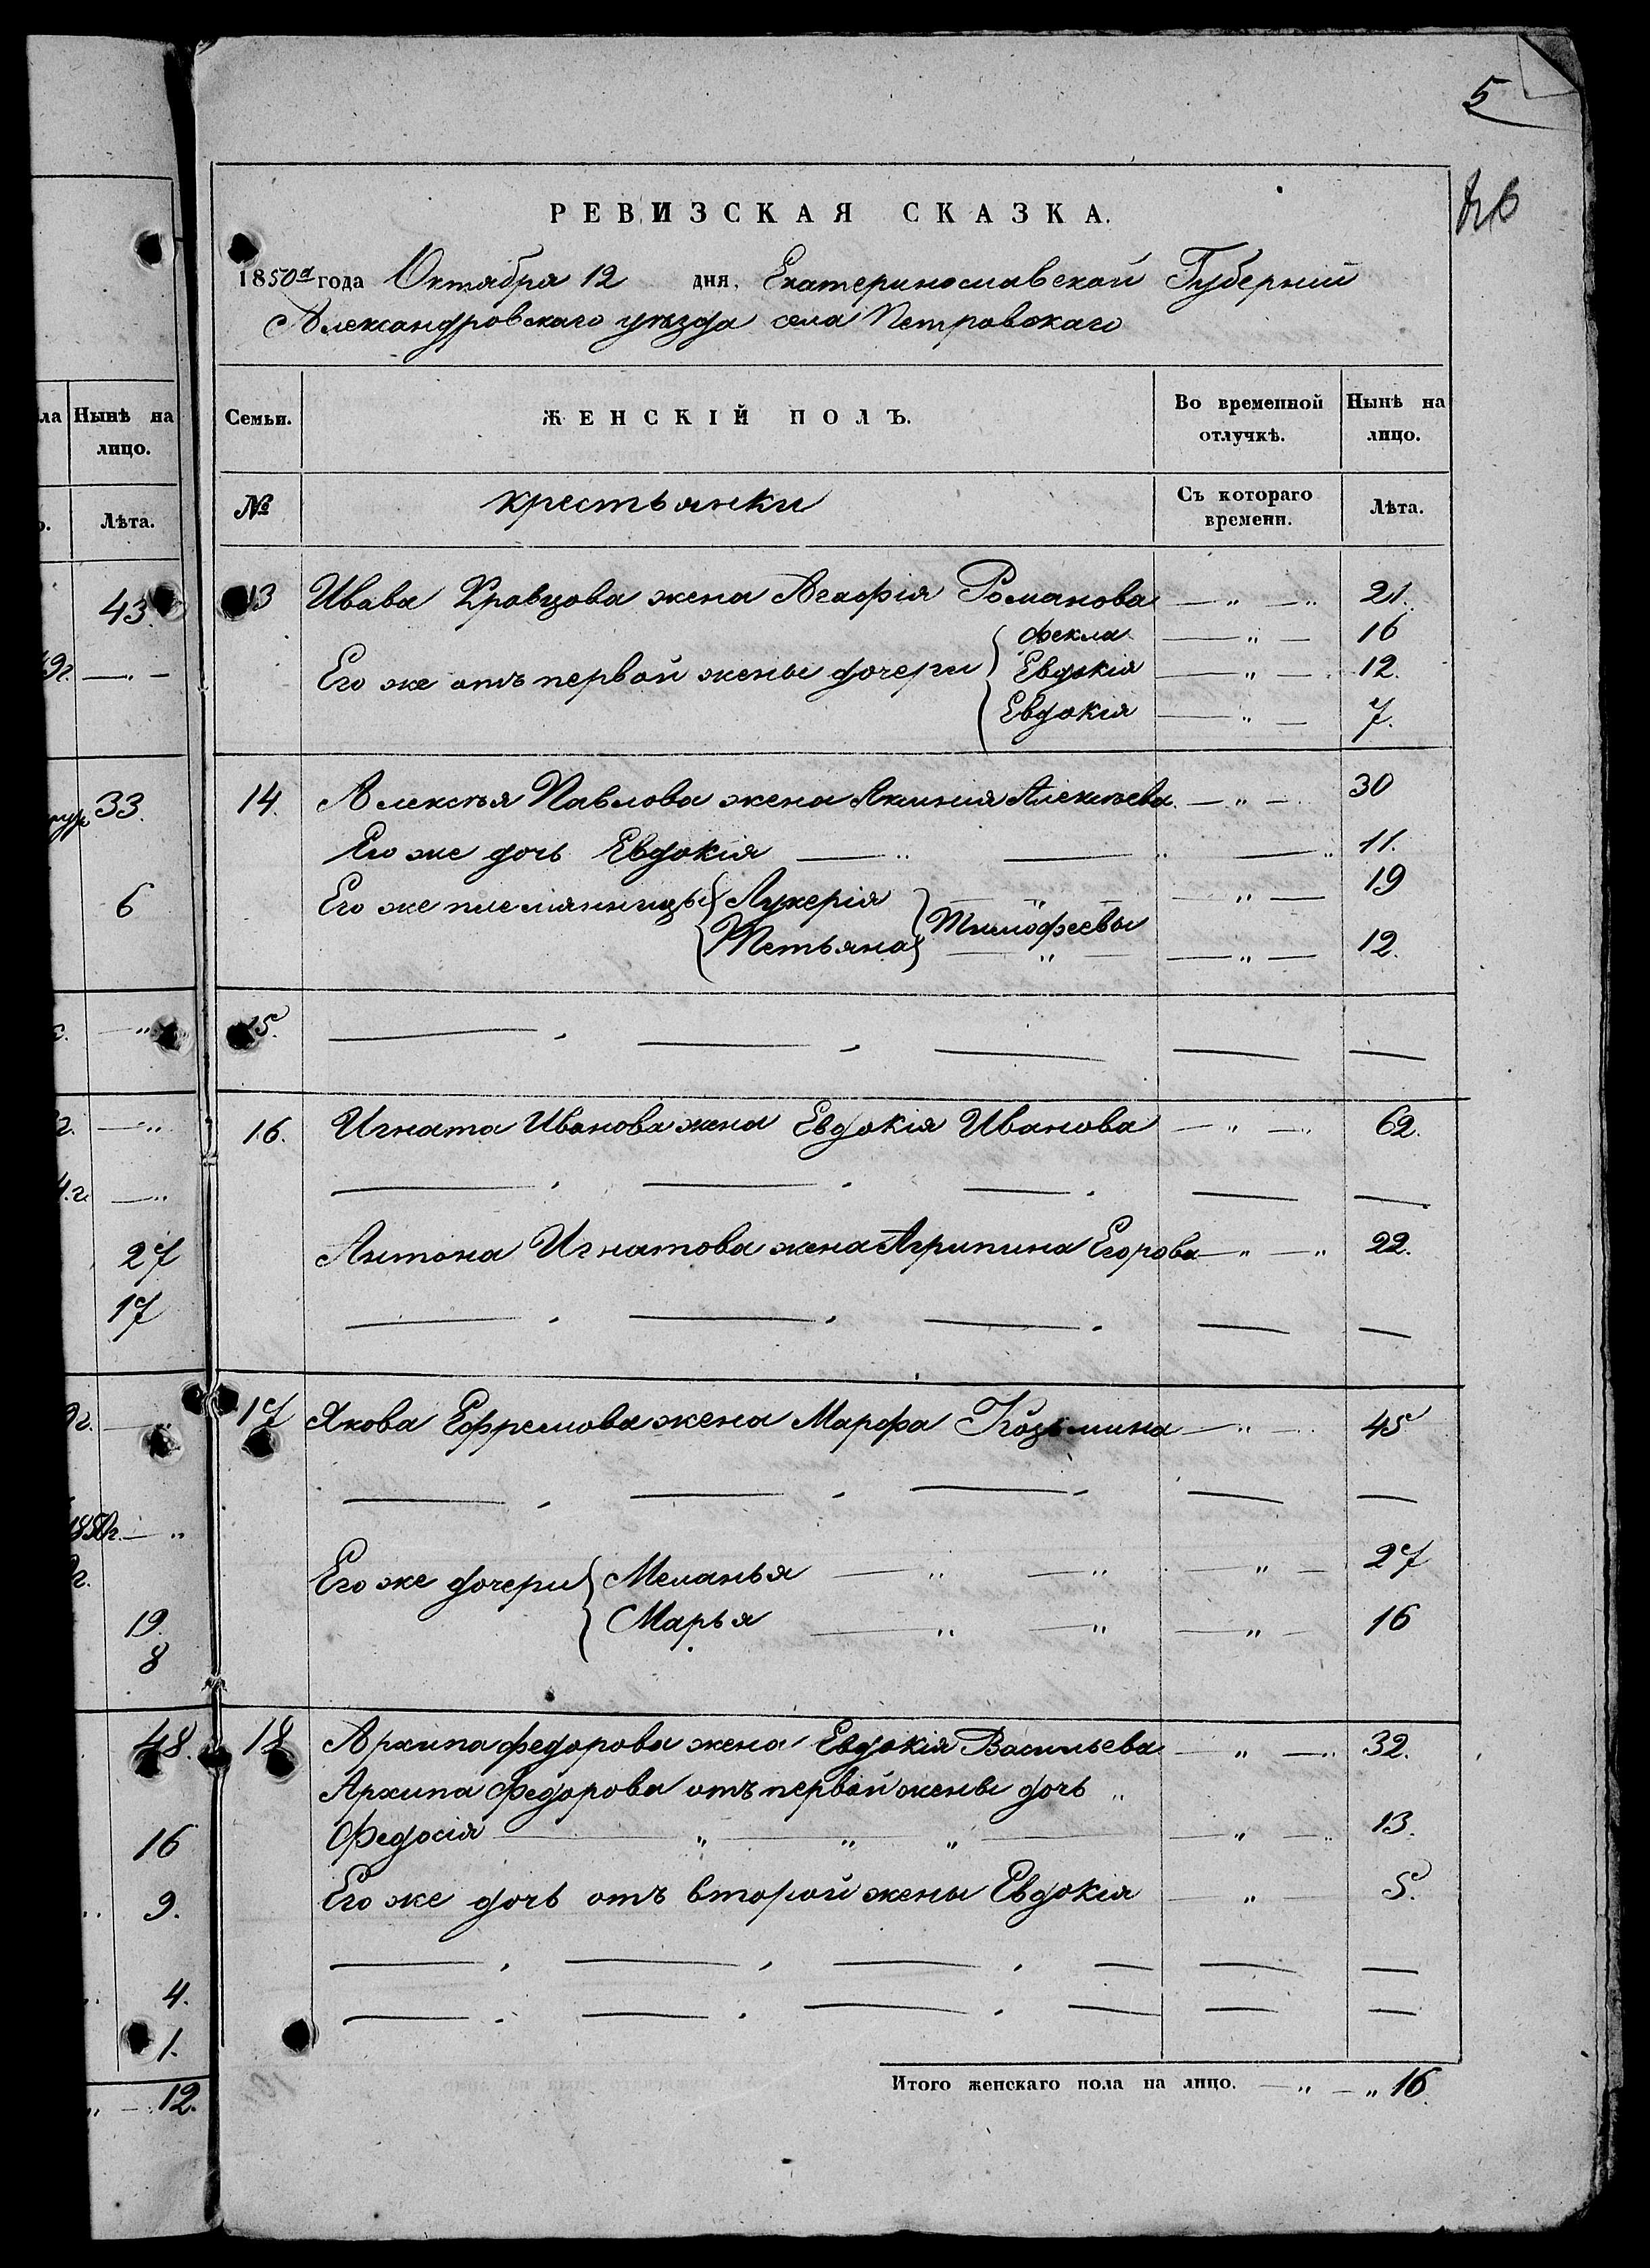 5
РЕВИЗСКАЯ СКАЗКА.
1850а года Октября 12 дня, Екатеринославской Губернии
Александровскаго уѣзда села Петровскаго
ла Нынѣ на лицо.
Семьи. ЖЕНСКІЙ ПОЛЪ. Во временной отлучкѣ. Нынѣ на лицо.
Лѣта.
№ крестьянки Съ котораго времени. Лѣта.
43.
13 Ивава Кравцова жена Агафія Романова — " — " 21.
Фекла — " — 16
Его же отъ первой жены дочери Евдокія — " — 12.
Евдокія — " — 7.
33.
6
14. Алексѣя Павлова жена Акинія Алексѣева — " — 30
Его же дочь Евдокія — " — " — " 11.
Его же племянницы Лукерія — " — — " — 19
Тимофеевы
Тетьяна — " — — " — 12.
15. — — — — —
16. Игната Иванова жена Евдокія Иванова — " — " 62.
— — — — —
27
Антона Игнатова жена Агрипина Егорова — " — " 22.
17
— — — — —
17 Якова Ефремова жена Марфа Козьмина — " — 45
— — — — —
Его же дочери Меланья — " — " — " — 27
19.
Марья — " — " — " — 16
8
48.
18 Архипа Федорова жена Евдокія Васильева — " — " 32.
Архипа Федорова отъ первой жены дочь "
16
Федосія — " — " " — — " — " 13.
9.
Его же дочь отъ второй жены Евдокія — " — 5.
4.
— — — — — —
1.
— — — — — —
Итого женскаго пола на лицо. — " — " 16.
" — 12.